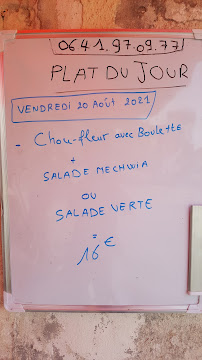 06 41.97.09.77
PLAT DU JOUR
VENDREDI 20 AOÛT 2021
- Chou-fleur avec Boulette
+
SALADE MECHWIA
OU
SALADE VERTE
=
16€